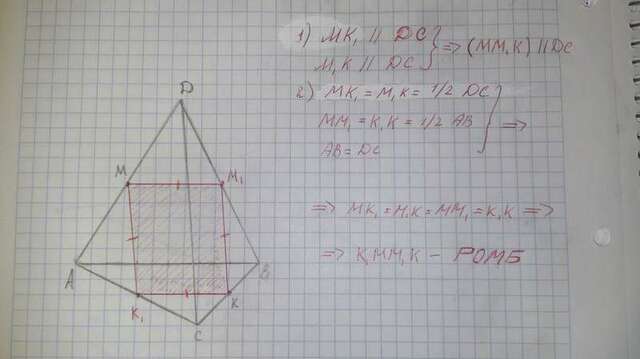 1) MK₁ // DC
M₁K // DC } => (MM₁K) // DC
2) MK₁ = M₁K = 1/2 DC
MM₁ = K₁K = 1/2 AB } =>
AB = DC
=> MK₁ = M₁K = MM₁ = K₁K =>
=> K₁MM₁K – РОМБ
D
M
M₁
A
B
K₁
K
C